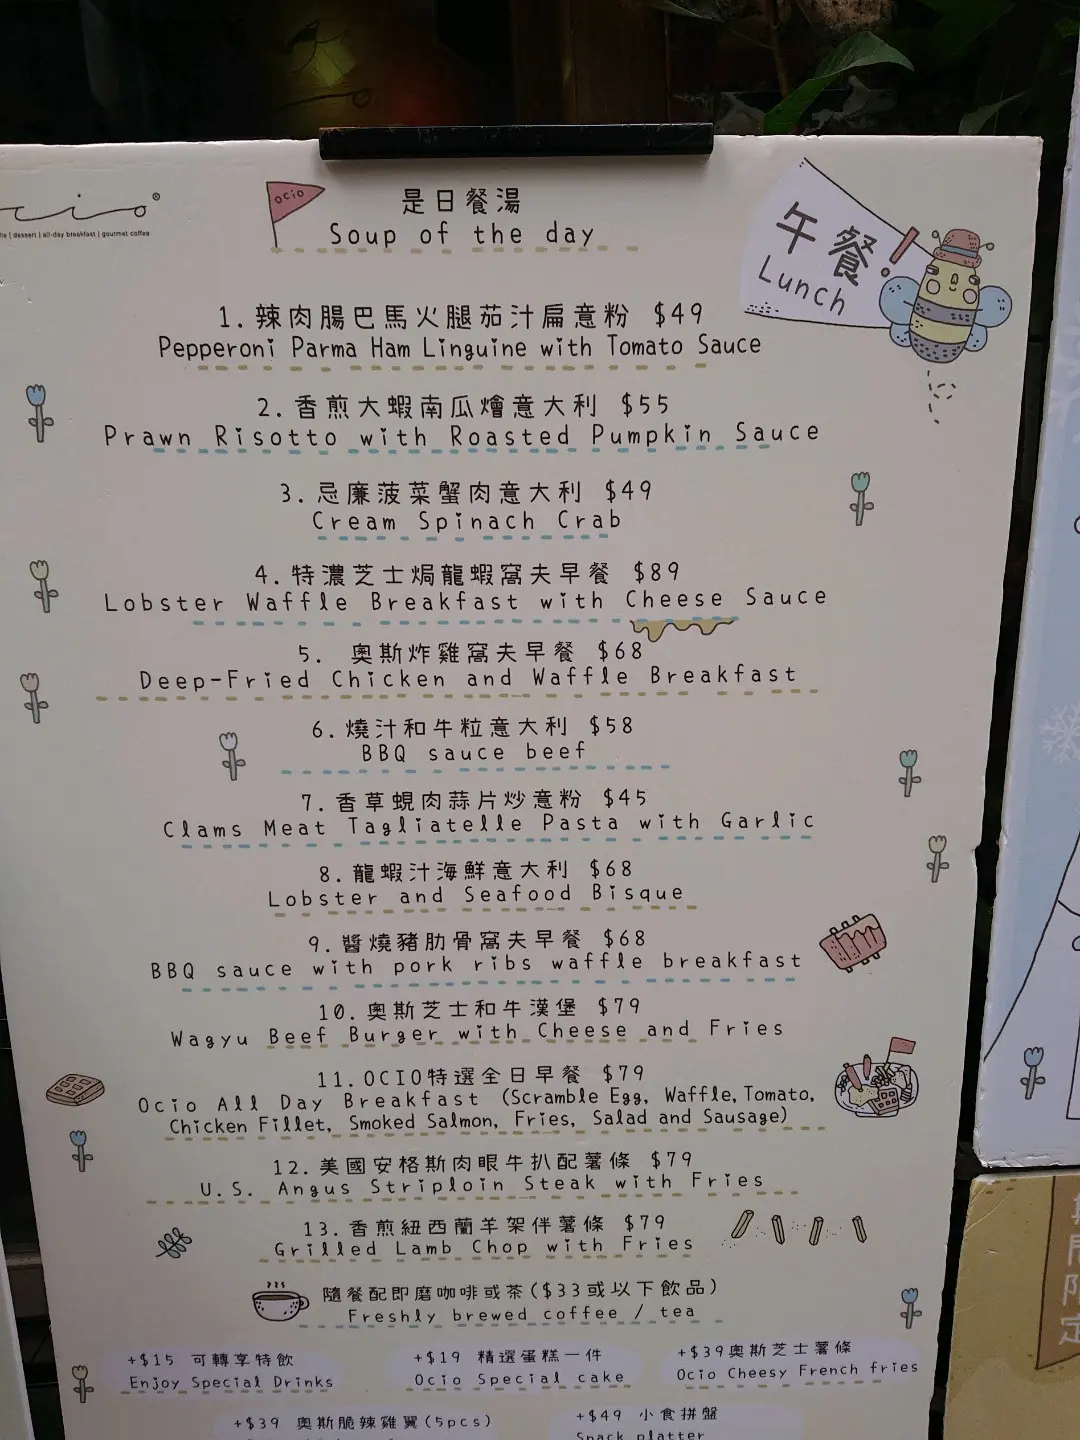 cio®
| dessert | all-day breakfast | gourmet coffee
ocio
是日餐湯
Soup of the day
午餐!
Lunch
1. 辣肉腸巴馬火腿茄汁扁意粉 $49
Pepperoni Parma Ham Linguine with Tomato Sauce
2. 香煎大蝦南瓜燴意大利 $55
Prawn Risotto with Roasted Pumpkin Sauce
3. 忌廉菠菜蟹肉意大利 $49
Cream Spinach Crab
4. 特濃芝士焗龍蝦窩夫早餐 $89
Lobster Waffle Breakfast with Cheese Sauce
5. 奧斯炸雞窩夫早餐 $68
Deep-Fried Chicken and Waffle Breakfast
6. 燒汁和牛粒意大利 $58
BBQ sauce beef
7. 香草蜆肉蒜片炒意粉 $45
Clams Meat Tagliatelle Pasta with Garlic
8. 龍蝦汁海鮮意大利 $68
Lobster and Seafood Bisque
9. 醬燒豬肋骨窩夫早餐 $68
BBQ sauce with pork ribs waffle breakfast
10. 奧斯芝士和牛漢堡 $79
Wagyu Beef Burger with Cheese and Fries
11. OCIO特選全日早餐 $79
Ocio All Day Breakfast (Scramble Egg, Waffle, Tomato,
Chicken Fillet, Smoked Salmon, Fries, Salad and Sausage)
12. 美國安格斯肉眼牛扒配薯條 $79
U.S. Angus Striploin Steak with Fries
13. 香煎紐西蘭羊架伴薯條 $79
Grilled Lamb Chop with Fries
隨餐配即磨咖啡或茶($33或以下飲品)
Freshly brewed coffee / tea
+$15 可轉享特飲
Enjoy Special Drinks
+$19 精選蛋糕一件
Ocio Special cake
+$39奧斯芝士薯條
Ocio Cheesy French fries
+$39 奧斯脆辣雞翼(5pcs)
+$49 小食拼盤
Snack platter
間限定